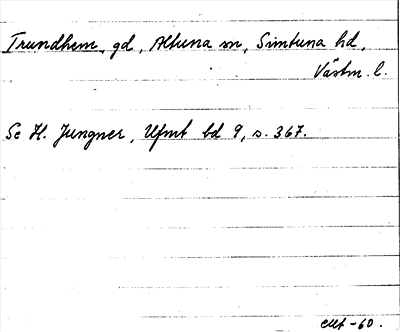 Trundhem, gd, Altuna sn, Simtuna hd,
Västm. l.
Se H. Jungner, Ufmt bd 9, s. 367.
-60.